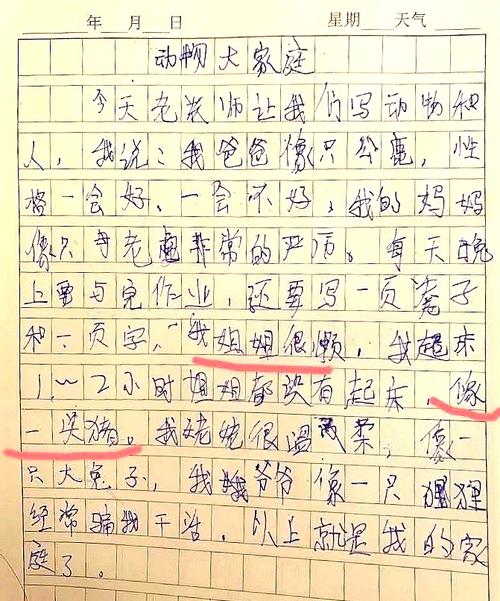 年 月 日 星期 天气
动物大家庭
今天老师让我们写动物和
人，我说：我爸爸像只公鹿，性
格一会好，一会不好，我的妈妈
像只母老虎非常的严厉。每天晚
上要写完作业，还要写一页凳子
和一页字，我姐姐很懒，我起床
1～2小时姐姐都没有起床，像
一头猪。我姥姥很温柔，像一
只大兔子，我爷爷像一只狸狸
经常骗我干活，以上就是我的家
庭了。